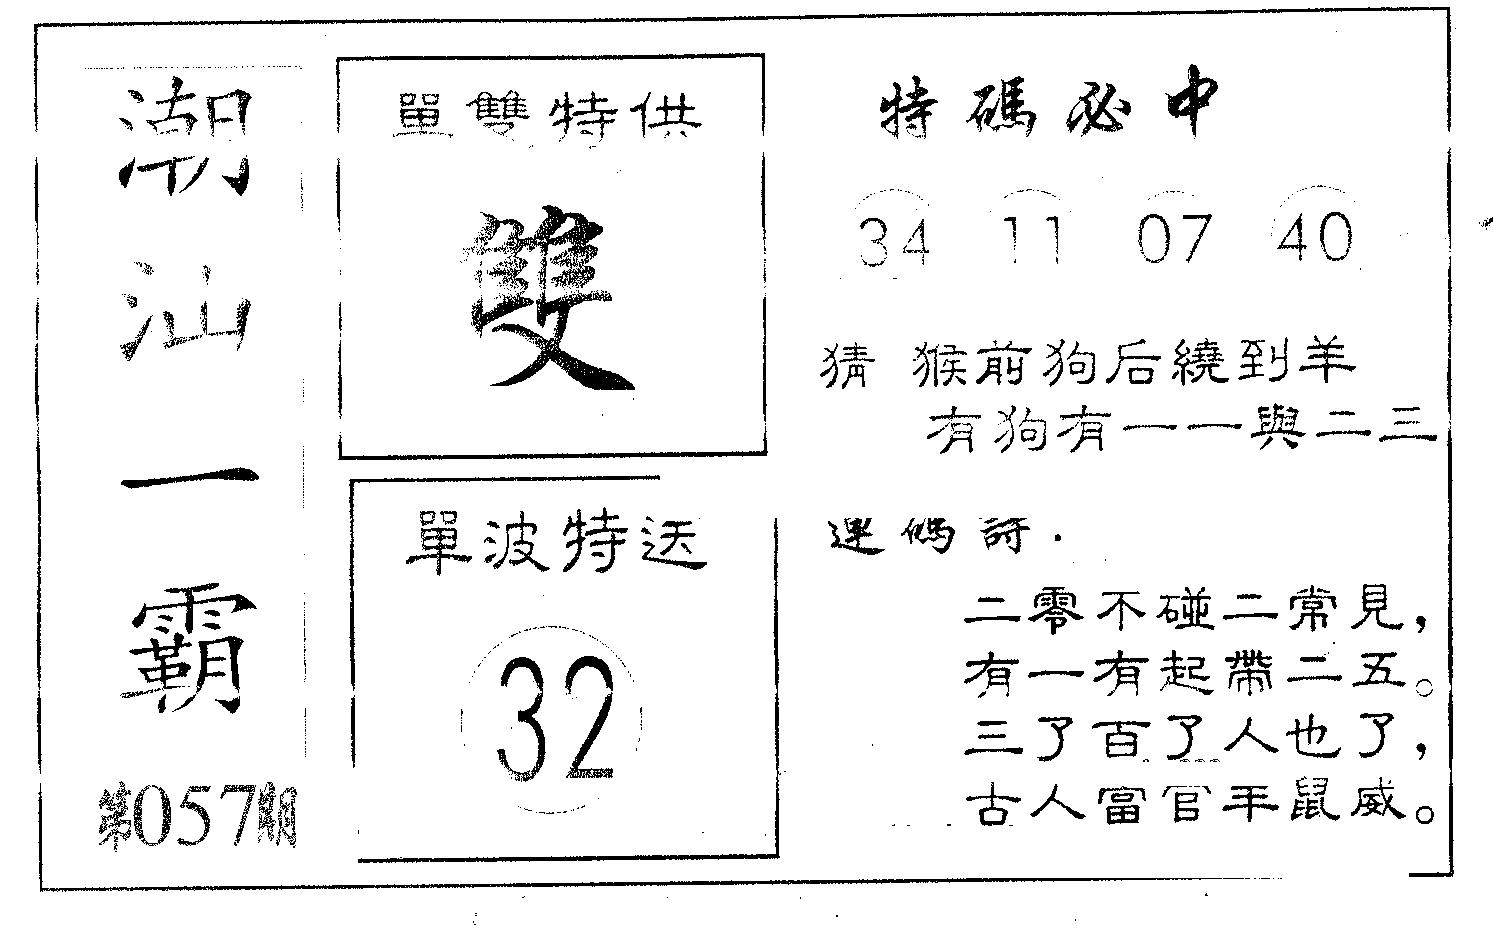 潮汕一霸
第057期
單雙特供
雙
單波特送
32
特碼必中
34 11 07 40
猜 猴前狗后繞到羊
有狗有一一與二三
運碼詩.
二零不碰二常見，
有一有起帶二五。
三了百了人也了，
古人富官平鼠威。